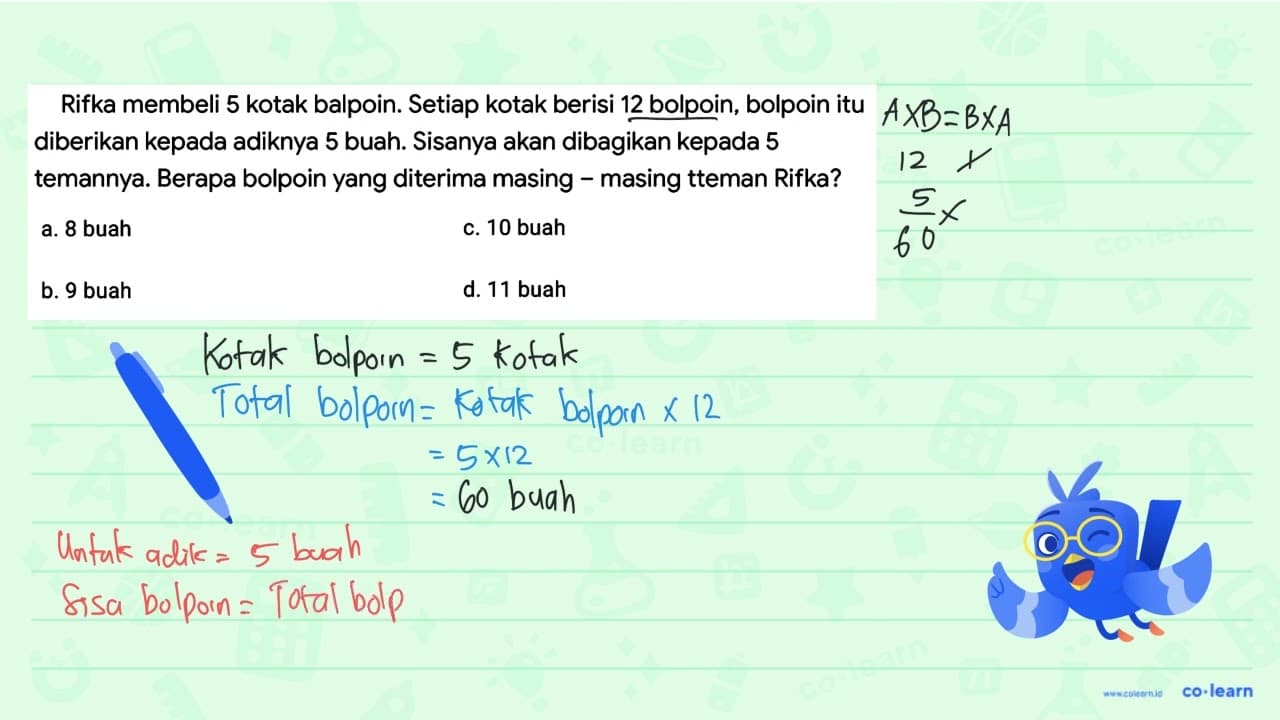 Rifka membeli 5 kotak balpoin. Setiap kotak berisi 12 bolpoin, bolpoin itu
diberikan kepada adiknya 5 buah. Sisanya akan dibagikan kepada 5
temannya. Berapa bolpoin yang diterima masing – masing tteman Rifka?
a. 8 buah
c. 10 buah
b. 9 buah
d. 11 buah
A×B=B×A
12 ×
5 ×
60
Kotak bolpoin = 5 Kotak
Total bolpoin = Kotak bolpoin × 12
= 5×12
= 60 buah
Untuk adik = 5 buah
Sisa bolpoin = Total bolp
co·learn
co·learn
co·learn
www.colearn.id co·learn